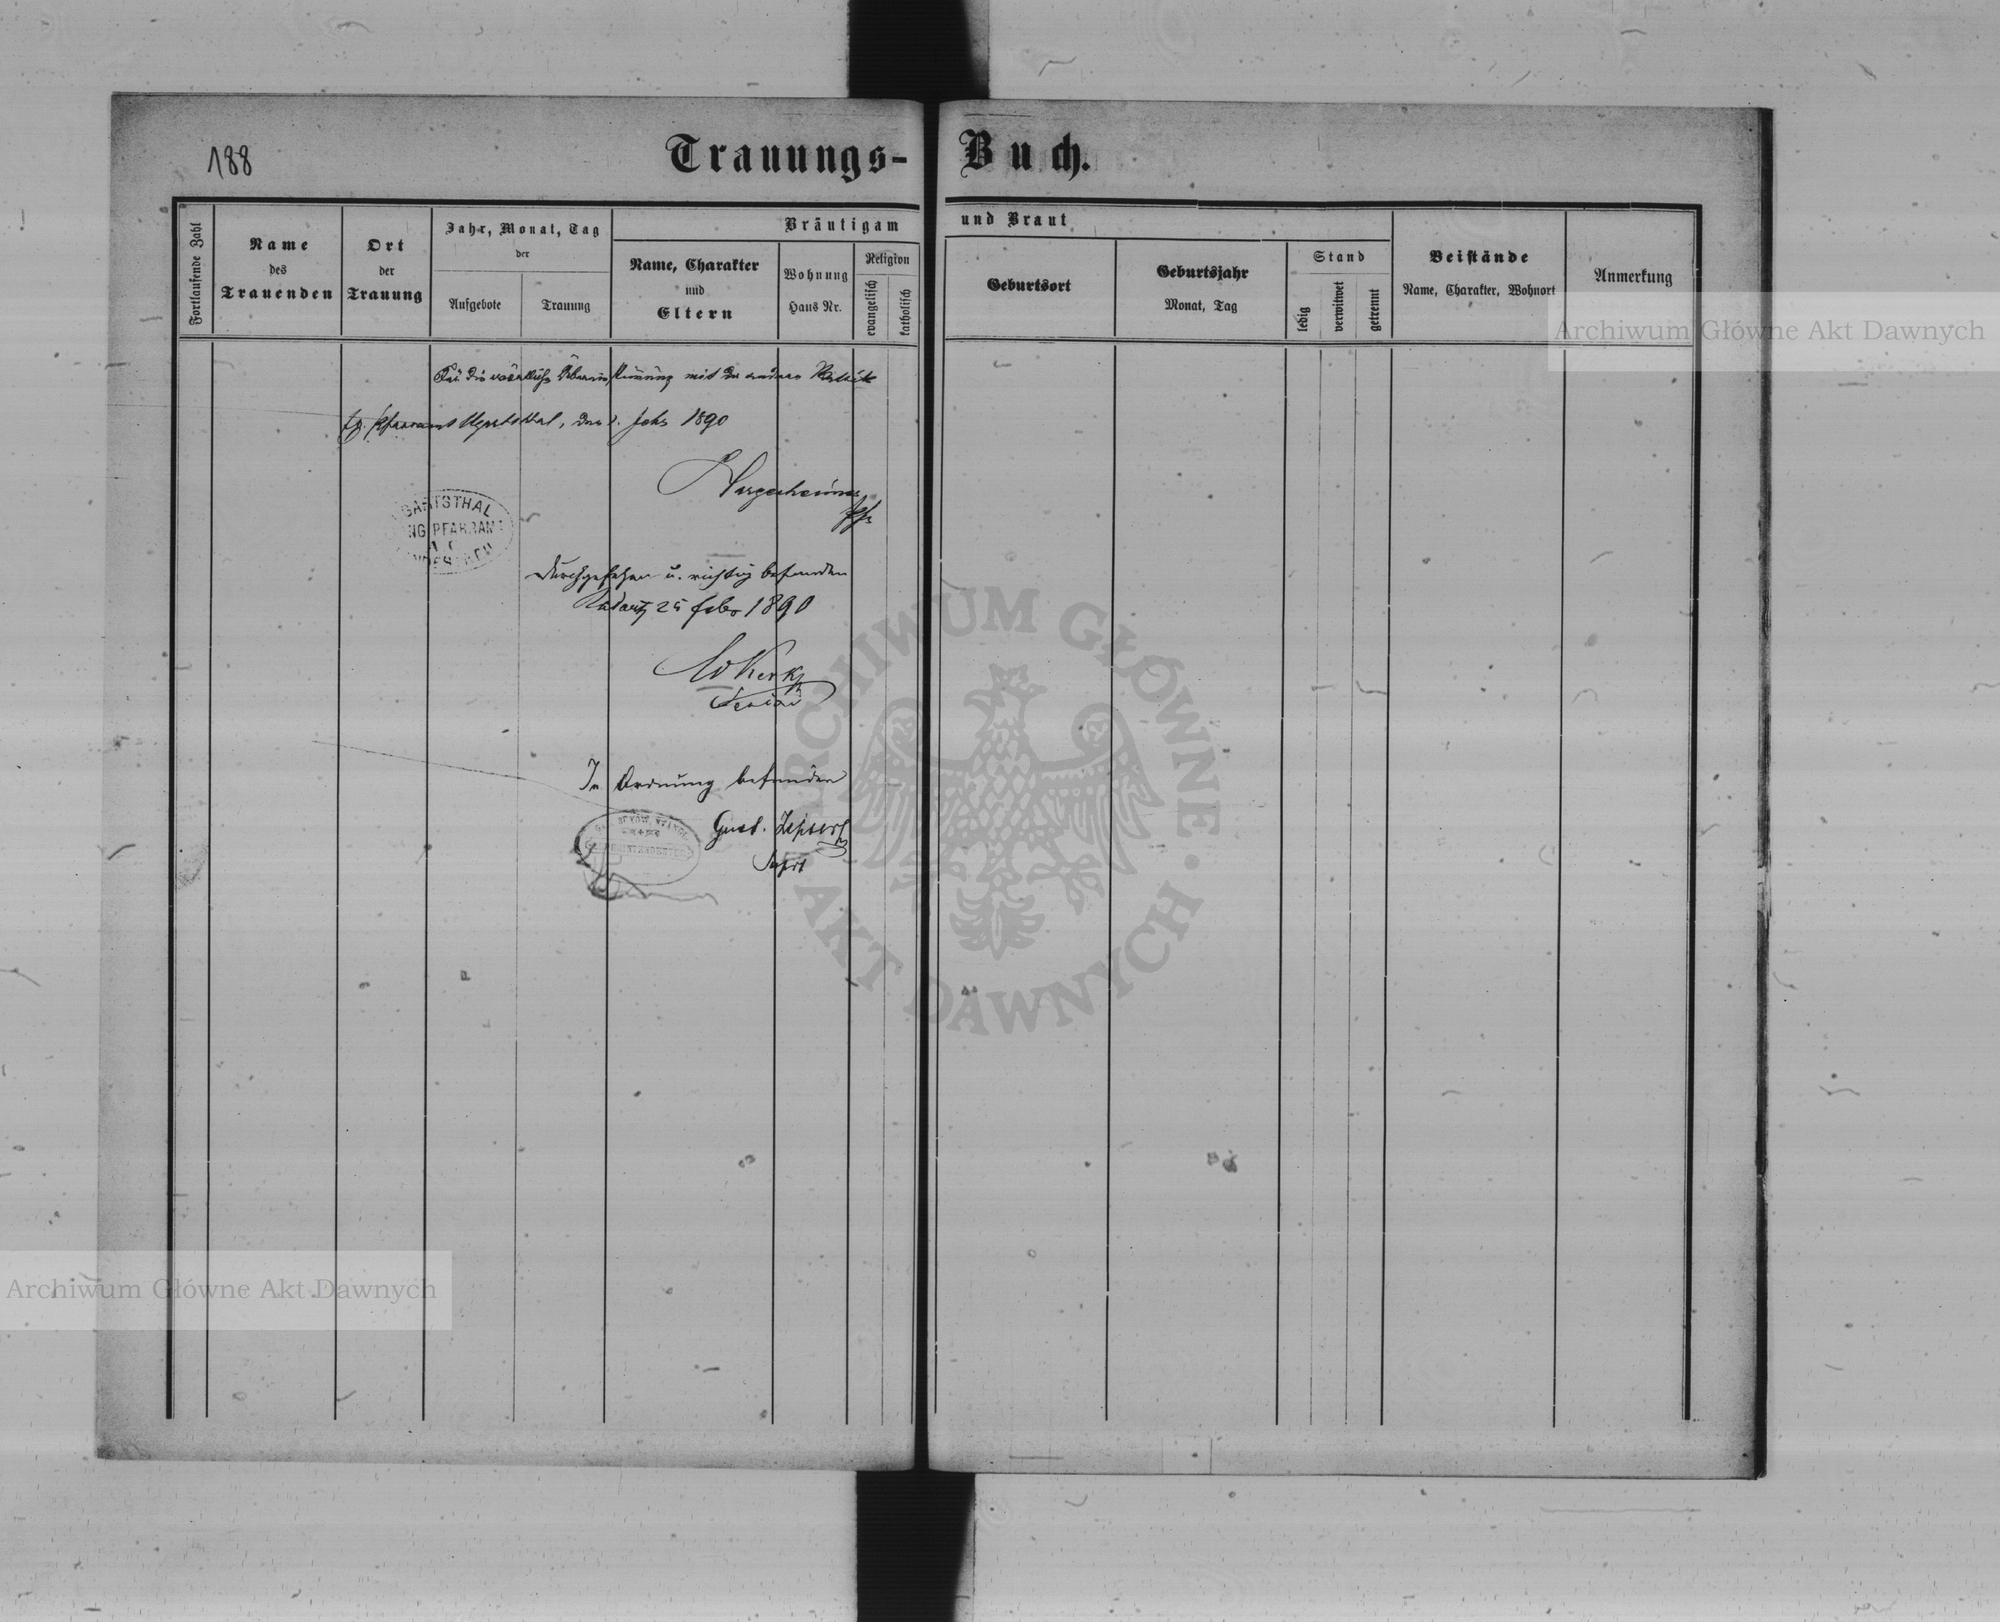 188
Trauungs-Buch.
Fortlaufende Zahl
Name
des
Trauenden
Ort
der
Trauung
Jahr, Monat, Tag
der
Aufgebote
Trauung
Bräutigam und Braut
Name, Charakter
und
Eltern
Wohnung
Haus Nr.
Religion
evangelisch
katholisch
Geburtsort
Geburtsjahr
Monat, Tag
Stand
ledig
verwitwet
getrennt
Beistände
Name, Charakter, Wohnort
Anmerkung
Für die wörtliche Übereinstimmung mit der andern
Pfarramt Ugartsthal, den Febr 1890
GARTSTHAL
NG PFARRAM
Durchgesehen u. richtig befunden
25 Febr 1890
Senior
In Ordnung befunden
Gust.
Archiwum Główne Akt Dawnych
ARCHIWUM GŁÓWNE · AKT DAWNYCH
Archiwum Główne Akt Dawnych